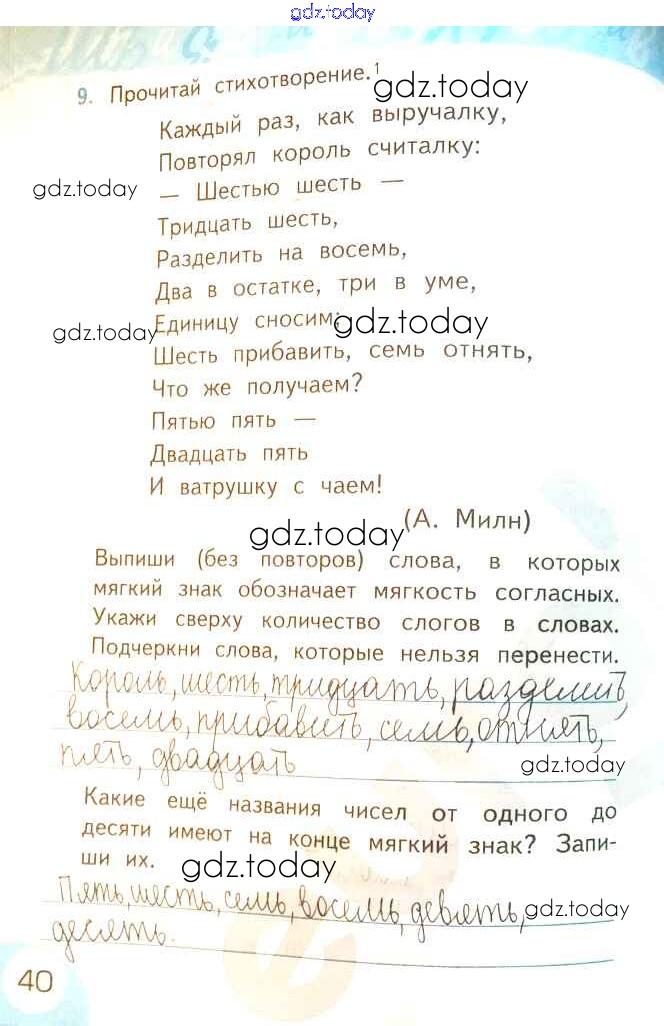 gdz.today
9. Прочитай стихотворение.¹
gdz.today
Каждый раз, как выручалку,
Повторял король считалку:
gdz.today
— Шестью шесть —
Тридцать шесть,
Разделить на восемь,
Два в остатке, три в уме,
Единицу сносим;
gdz.today
gdz.today
Шесть прибавить, семь отнять,
Что же получаем?
Пятью пять —
Двадцать пять
И ватрушку с чаем!
(А. Милн)
gdz.today
Выпиши (без повторов) слова, в которых
мягкий знак обозначает мягкость согласных.
Укажи сверху количество слогов в словах.
Подчеркни слова, которые нельзя перенести.
Король, шесть, тридцать, разделить,
восемь, прибавить, семь, отнять,
пять, двадцать
gdz.today
Какие ещё названия чисел от одного до
десяти имеют на конце мягкий знак? Запи-
ши их.
gdz.today
Пять, шесть, семь, восемь, девять,
gdz.today
десять.
40